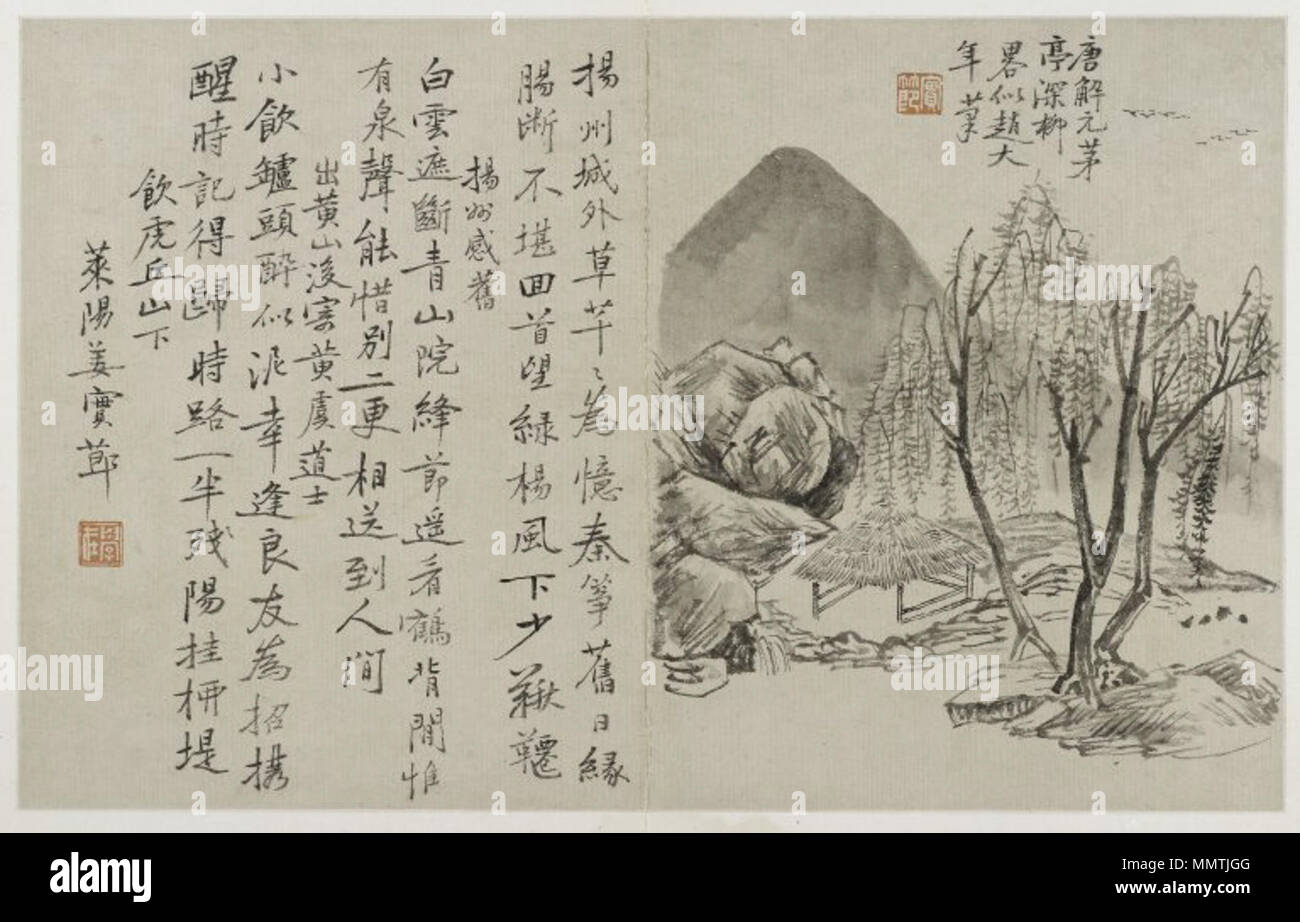 唐解元茅
亭深柳
畧似趙大
年筆
實節
揚州城外草芊〻為憶秦箏舊日緣
腸斷不堪回首望綠楊風下少鞦韆
揚州感舊
白雲遮斷青山院絳節遥看鶴背閒惟
有泉聲能惜別二更相送到人間
出黄山後寄黄虞道士
小飲鑪頭醉似泥幸逢良友為招携
醒時記得歸時路一半殘陽挂柳堤
飲虎丘山下
萊陽姜實節
alamy
Image ID: MMTJGG
www.alamy.com